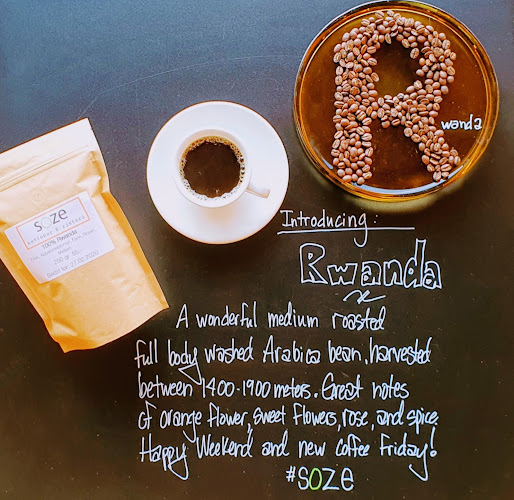 wanda
SOZE
100% Rwanda
250 gr
Introducing:
Rwanda
A wonderful medium roasted
full body washed Arabica bean, harvested
between 1400-1900 meters. Great notes
of orange flower, sweet flowers, rose, and spice.
Happy Weekend and new coffee Friday!
#SOZE